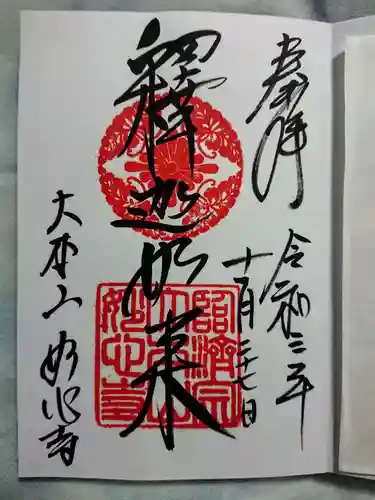 奉拝
令和三年
十一月二十七日
釋迦如来
大本山 妙心寺
臨済宗
大本山
妙心寺